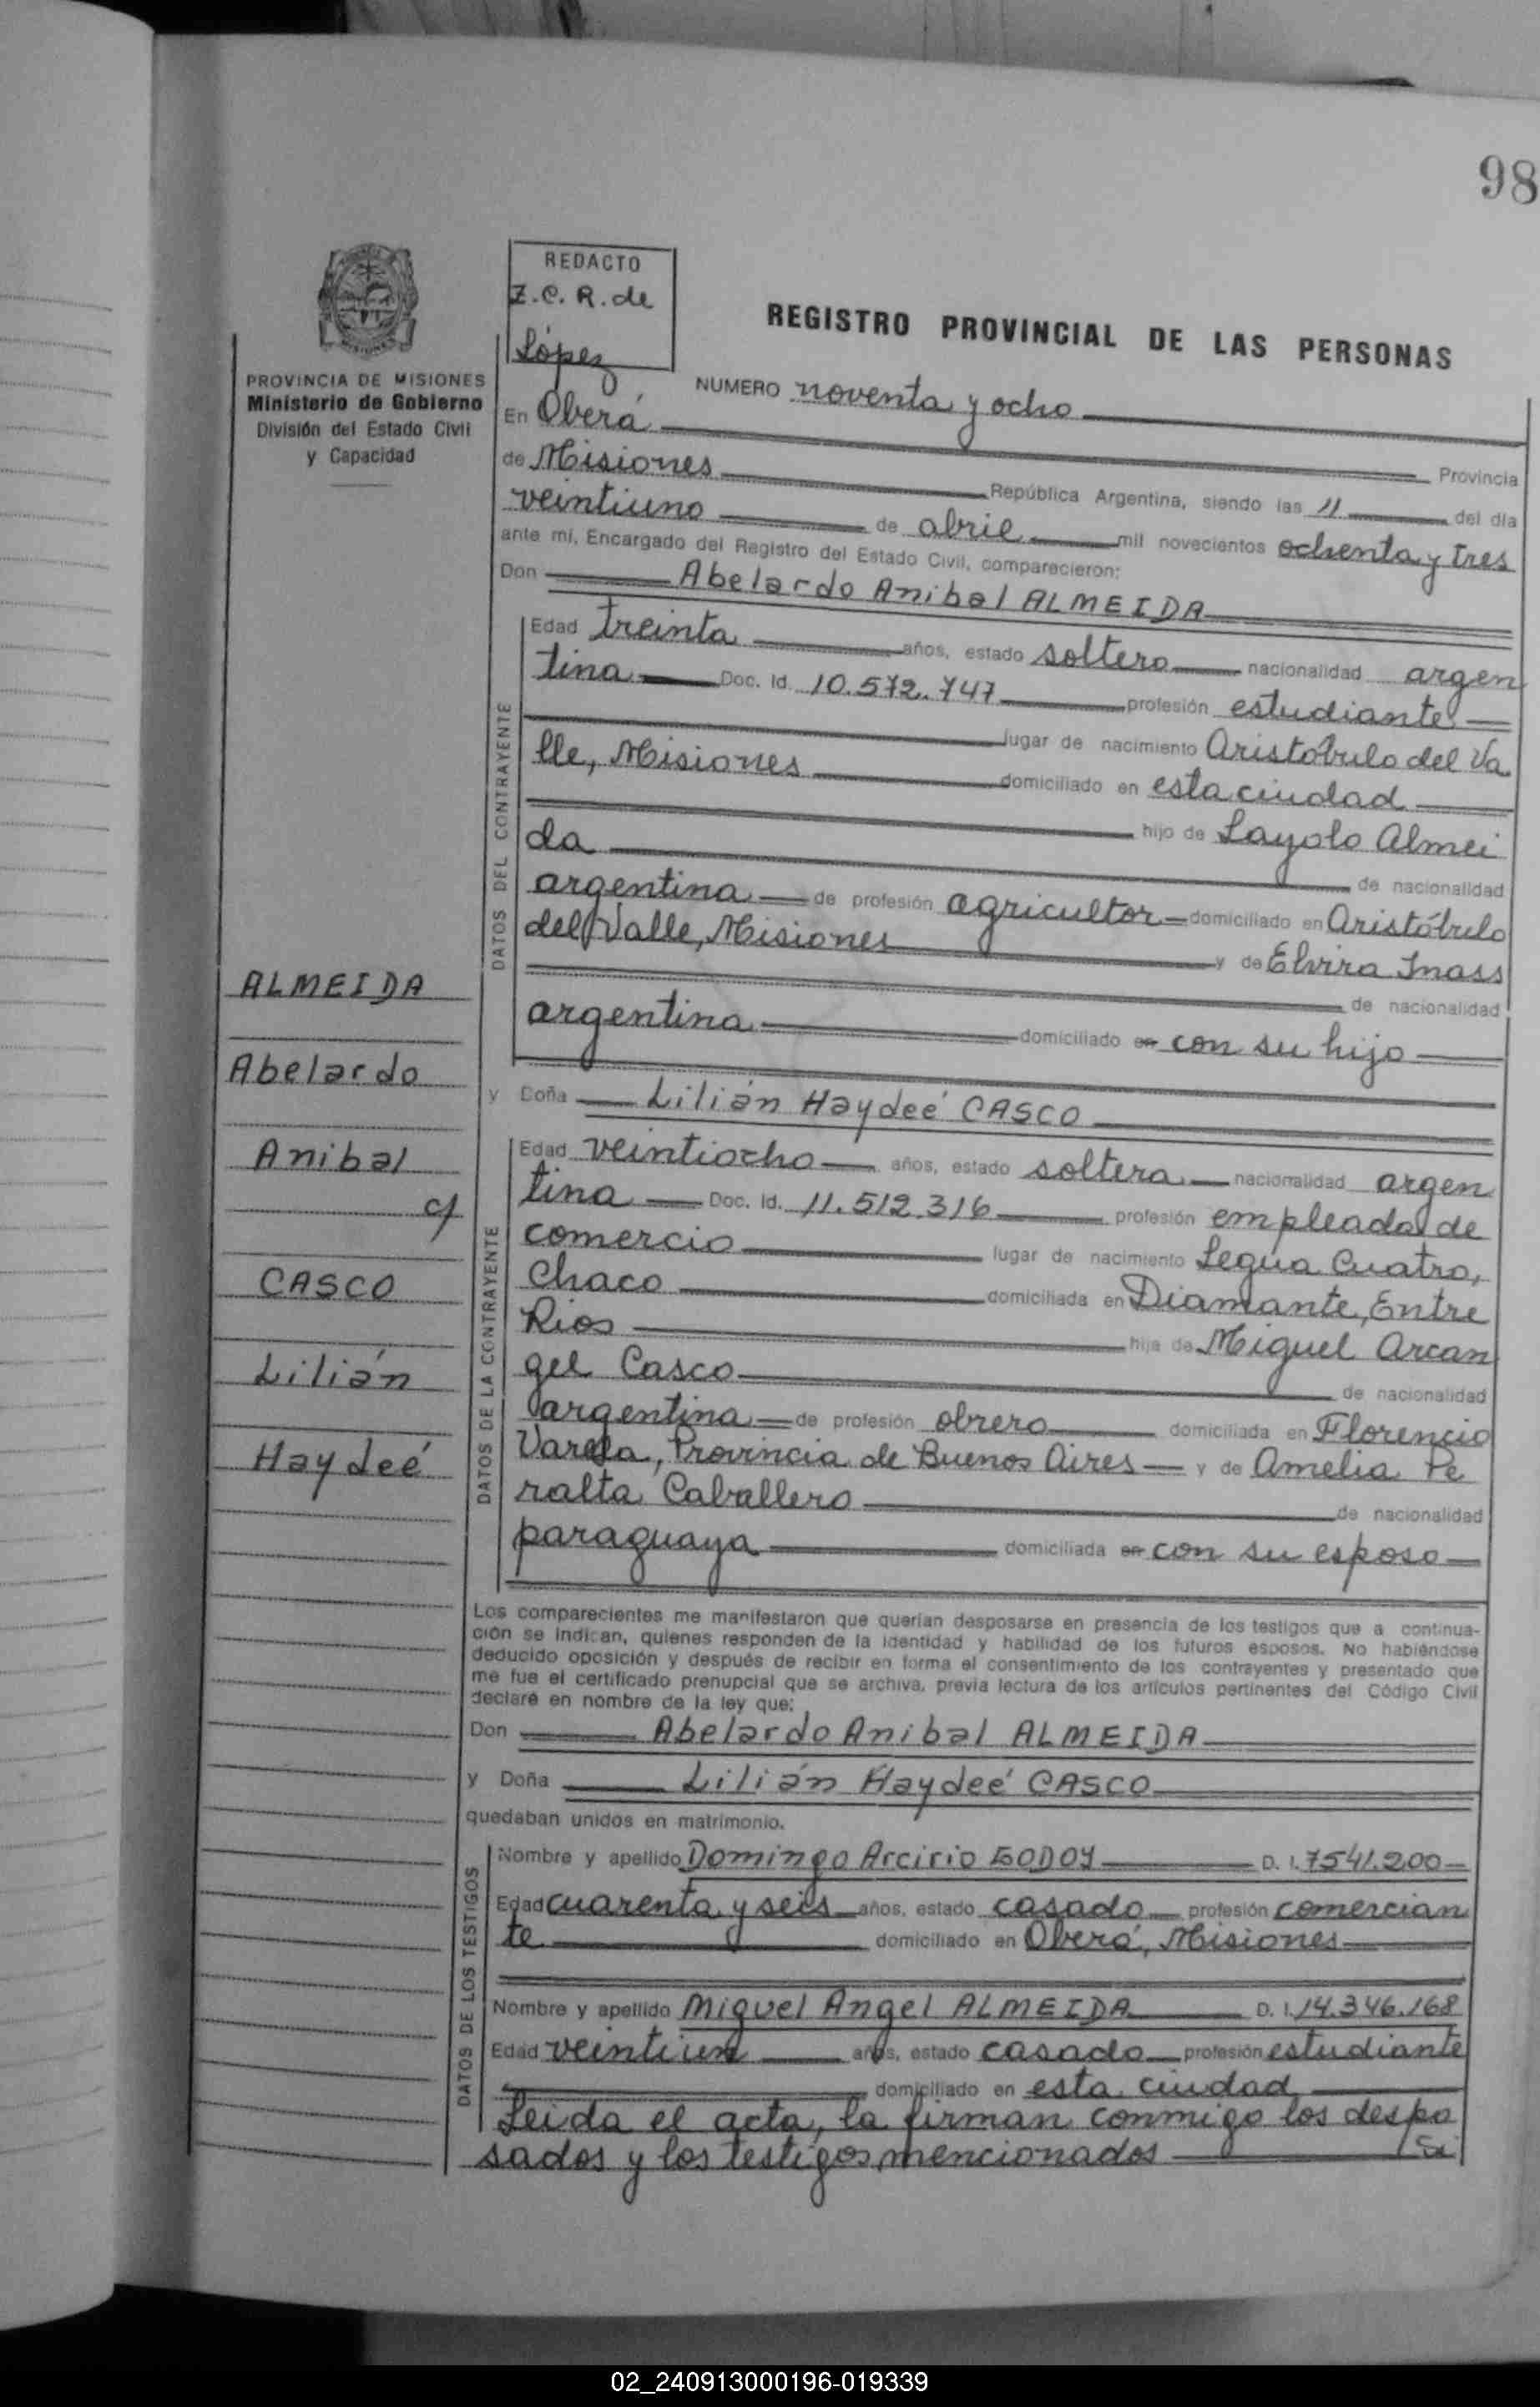 98
REDACTO
Z.C.R. de
López
REGISTRO PROVINCIAL DE LAS PERSONAS
PROVINCIA DE MISIONES
Ministerio de Gobierno
División del Estado Civil
y Capacidad
NUMERO noventa y ocho
En Oberá
Provincia
de Misiones República Argentina, siendo las 11 del día
veintiuno de abril mil novecientos ochenta y tres
ante mí, Encargado del Registro del Estado Civil, comparecieron:
Don Abelardo Anibal ALMEIDA
DATOS DEL CONTRAYENTE
Edad treinta años, estado soltero nacionalidad argen
tina Doc. Id. 10.572.747 profesión estudiante
lugar de nacimiento Aristóbulo del Va
lle, Misiones domiciliado en esta ciudad
hijo de Layolo Almei
da de nacionalidad
argentina de profesión agricultor domiciliado en Aristóbulo
del Valle, Misiones y de Elvira Inass
de nacionalidad
argentina domiciliado en con su hijo
y Doña Lilián Haydeé CASCO
DATOS DE LA CONTRAYENTE
Edad veintiocho años, estado soltera nacionalidad argen
tina Doc. Id. 11.512.316 profesión empleada de
comercio lugar de nacimiento Legua Cuatro,
Chaco domiciliada en Diamante, Entre
Rios hija de Miguel Arcan
gel Casco de nacionalidad
argentina de profesión obrero domiciliada en Florencio
Varela, Provincia de Buenos Aires y de Amelia Pe
ralta Caballero de nacionalidad
paraguaya domiciliada en con su esposo
ALMEIDA
Abelardo
Anibal
c/
CASCO
Lilián
Haydeé
Los comparecientes me manifestaron que querían desposarse en presencia de los testigos que a continua-
ción se indican, quienes responden de la identidad y habilidad de los futuros esposos. No habiéndose
deducido oposición y después de recibir en forma el consentimiento de los contrayentes y presentado que
me fue el certificado prenupcial que se archiva, previa lectura de los artículos pertinentes del Código Civil
declaré en nombre de la ley que:
Don Abelardo Anibal ALMEIDA
y Doña Lilián Haydeé CASCO
quedaban unidos en matrimonio.
DATOS DE LOS TESTIGOS
Nombre y apellido Domingo Arcirio GODOY D. I. 7541.200
Edad cuarenta y seis años, estado casado profesión comercian
te domiciliado en Oberá, Misiones
Nombre y apellido Miguel Angel ALMEIDA D. I. 14.346.168
Edad veintiun años, estado casado profesión estudiante
domiciliado en esta ciudad
Leida el acta, la firman conmigo los despo
sados y los testigos mencionados
02_240913000196-019339